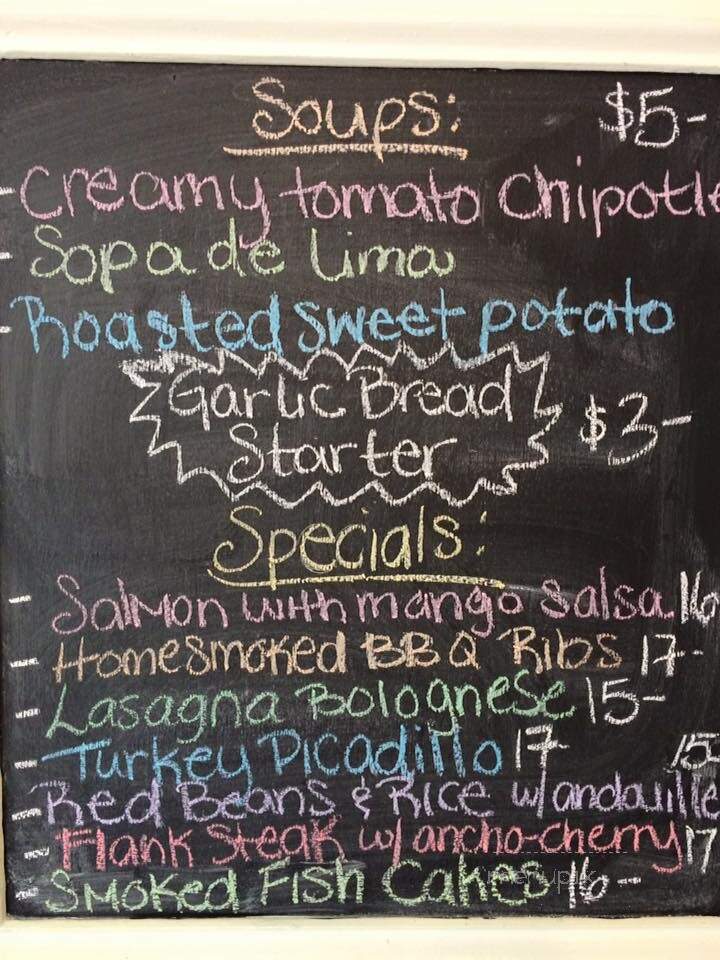 Soups: $5-
- Creamy tomato Chipotle
- Sopa de lima
- Roasted sweet potato
Garlic Bread
Starter $3-
Specials:
- Salmon with mango salsa 16
- Homesmoked BBQ Ribs 17-
- Lasagna Bolognese 15-
- Turkey Picadillo 17-
15-
- Red Beans & Rice w/andouille
- Flank Steak w/ancho-cherry 17
- Smoked Fish Cakes 16-
menupix